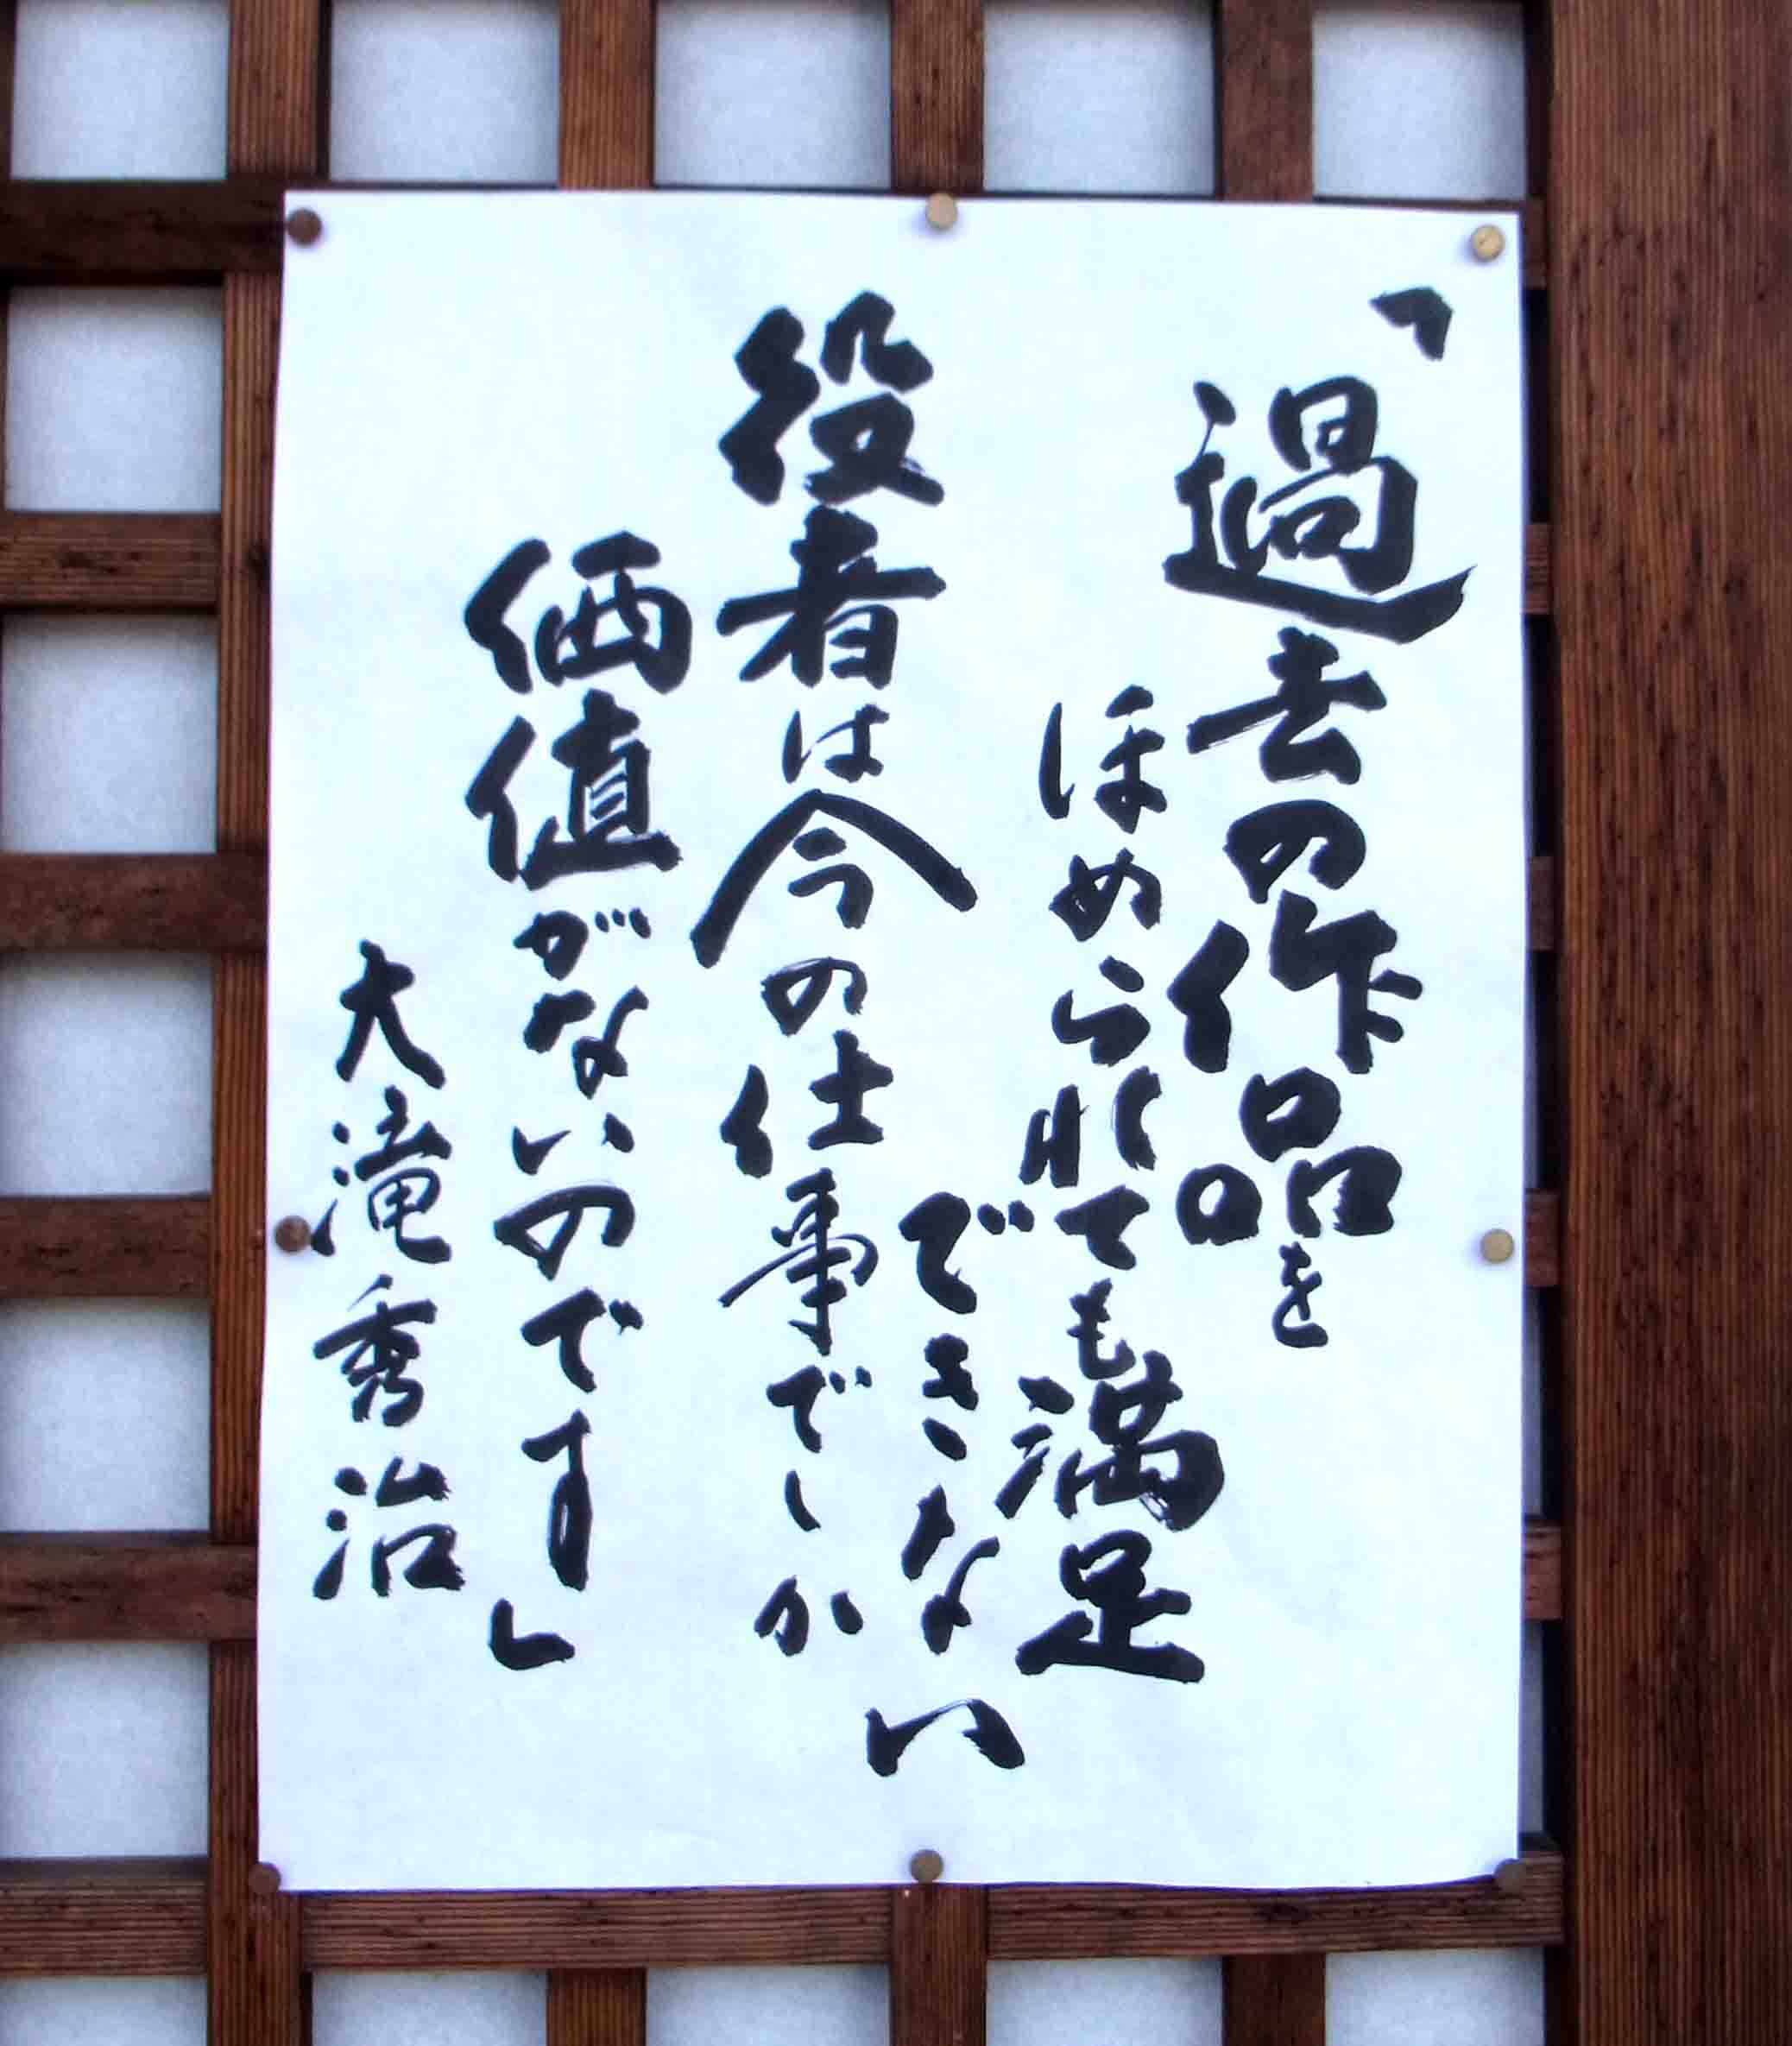 「過去の作品を
ほめられても満足
できない
役者は今の仕事でしか
価値がないのです」
大滝秀治